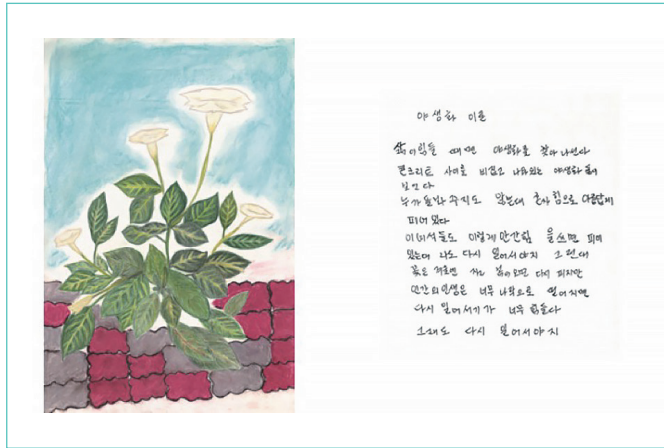 야생화 이름
삶이 힘들 때면 야생화를 찾아 나선다
콘크리트 사이를 비집고 나와있는 야생화들이
보인다
누가 돌봐 주지도 않는데 혼자 힘으로 아름답게
피어 있다
이 녀석들도 이렇게 안간힘을 쓰면 피어
있는데 나도 다시 일어서야지 그런데
꽃은 저물면 지고 봄이 오면 다시 피지만
인간의 인생은 너무 나락으로 떨어지면
다시 일어서기가 너무 힘들다
그래도 다시 일어서야지